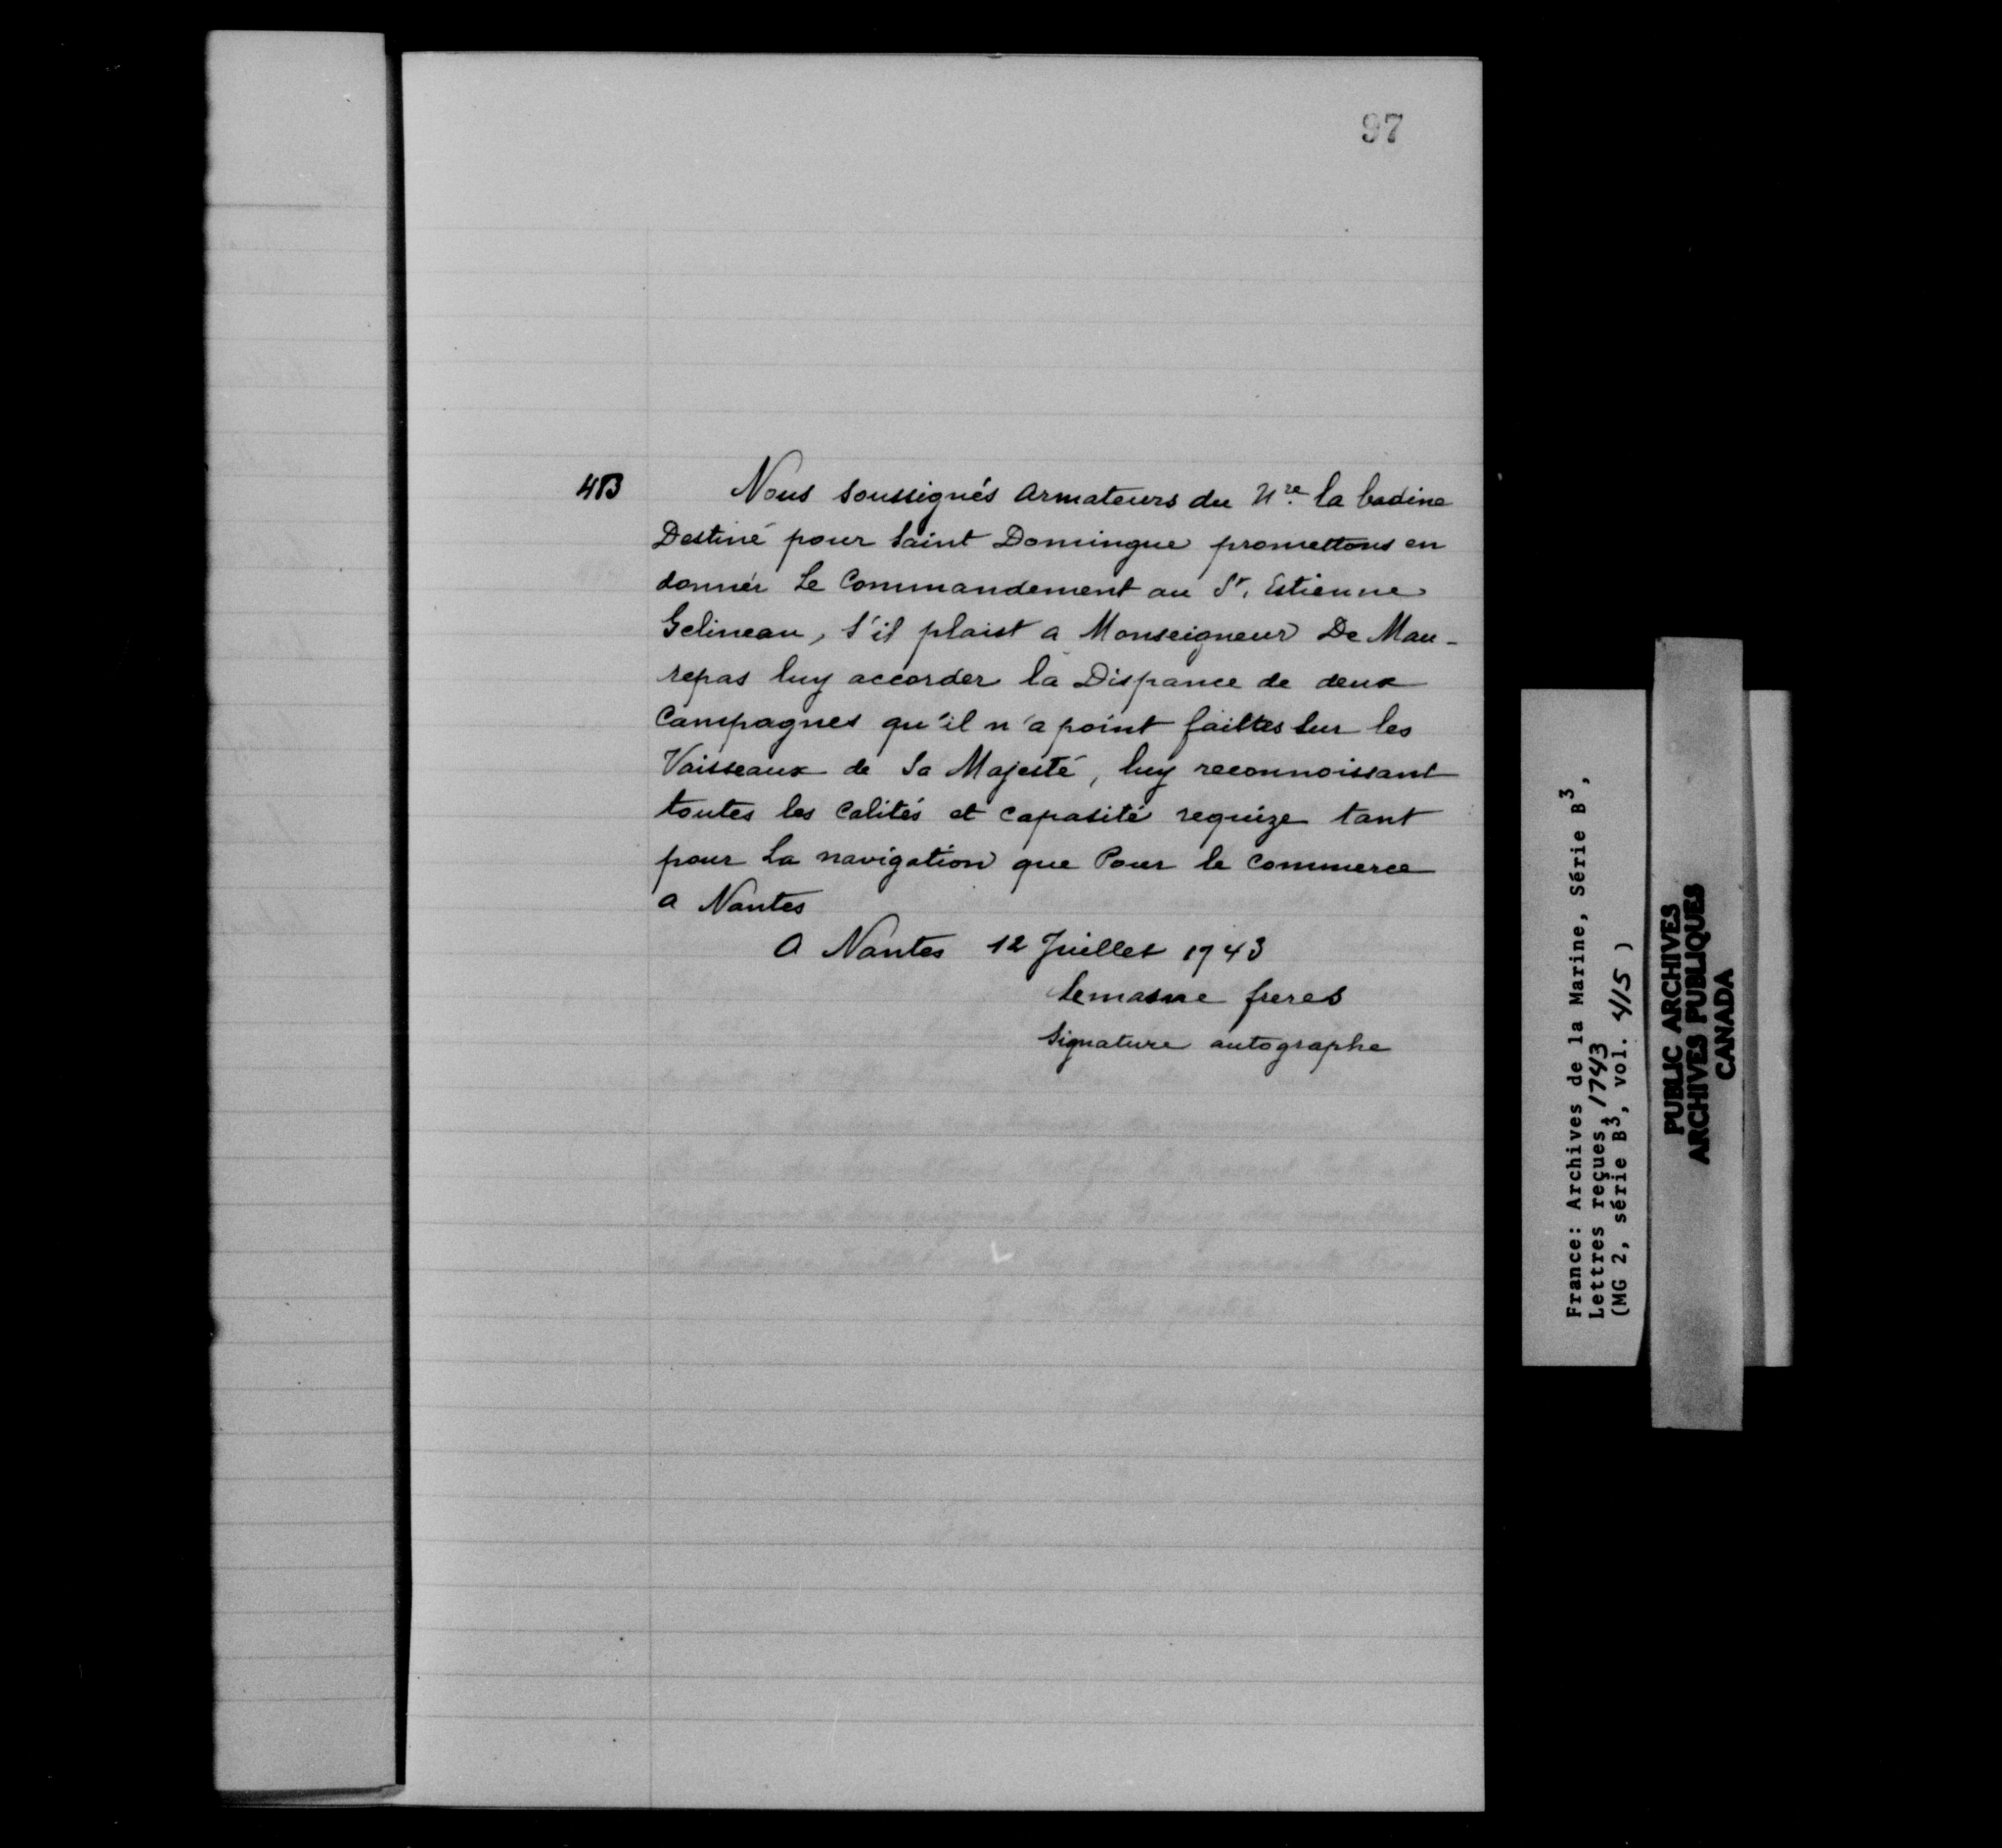 97
413
Nous soussignés armateurs du Nre la badine
Destiné pour Saint Domingue promettons en
donnér Le Commandement au Sr. Estienne
Gelineau, s'il plaist a Monseigneur De Mau-
repas luy accorder la Dispance de deux
Campagnes qu'il n'a point faittes sur les
Vaisseaux de Sa Majesté, luy reconnoissant
toutes les calités et capasité requize tant
pour La navigation que Pour le commerce
a Nantes
A Nantes 12 Juillet 1743
Lemasne freres
Signature autographe
France: Archives de la Marine, Série B3,
Lettres reçues, 1743
(MG 2, série B3, vol. 415)
PUBLIC ARCHIVES
ARCHIVES PUBLIQUES
CANADA